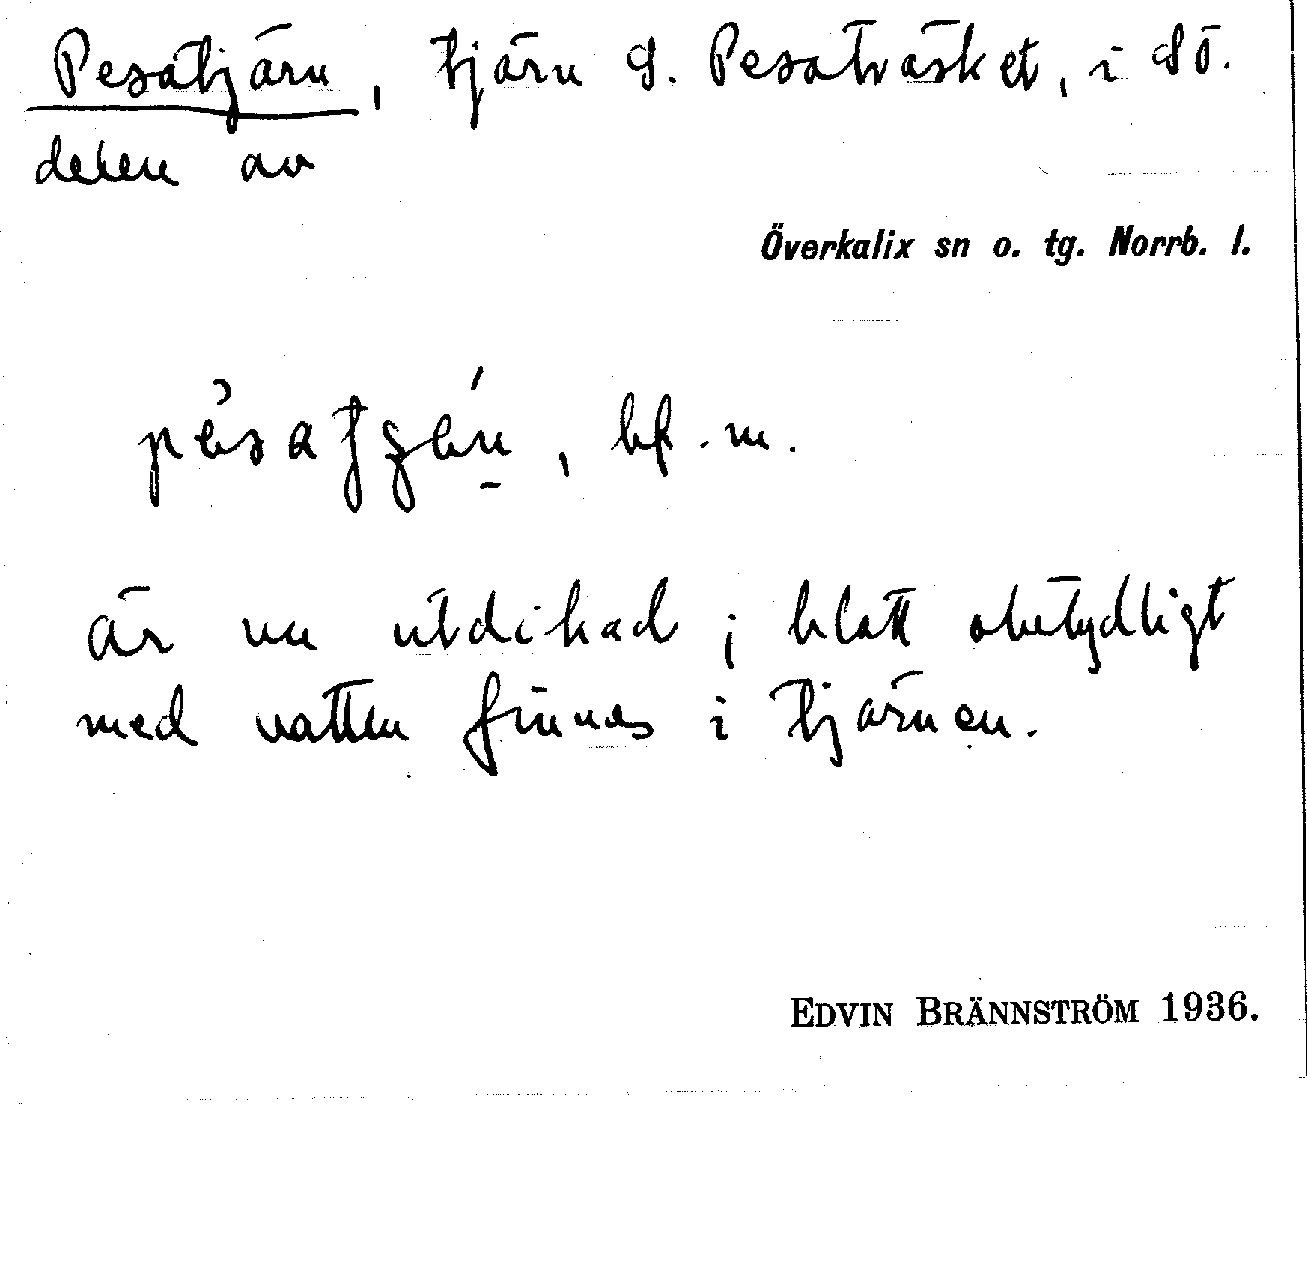 Pesatjärn, tjärn S. Pesatväsket, i SÖ.
delen av
Överkalix sn o. tg. Norrb. l.
bf. m.
är nu utdikad; blott obetydligt
med vatten finnes i tjärnen.
EDVIN BRÄNNSTRÖM 1936.